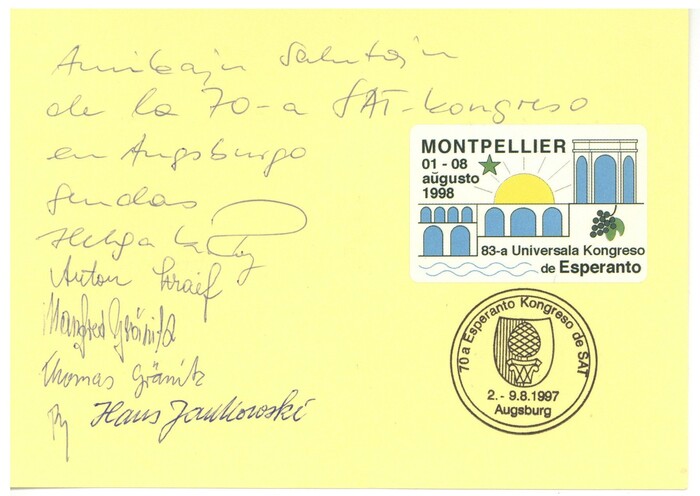 Amikajn Salutojn
de la 70-a SAT-kongreso
en Augsburgo
sendas
Helga
Anton
Manfred Gränitz
Thomas Gränitz
Hans Jankowski
MONTPELLIER
01 - 08
aŭgusto
1998
83-a Universala Kongreso
de Esperanto
70a Esperanto Kongreso de SAT
2. - 9.8.1997
Augsburg